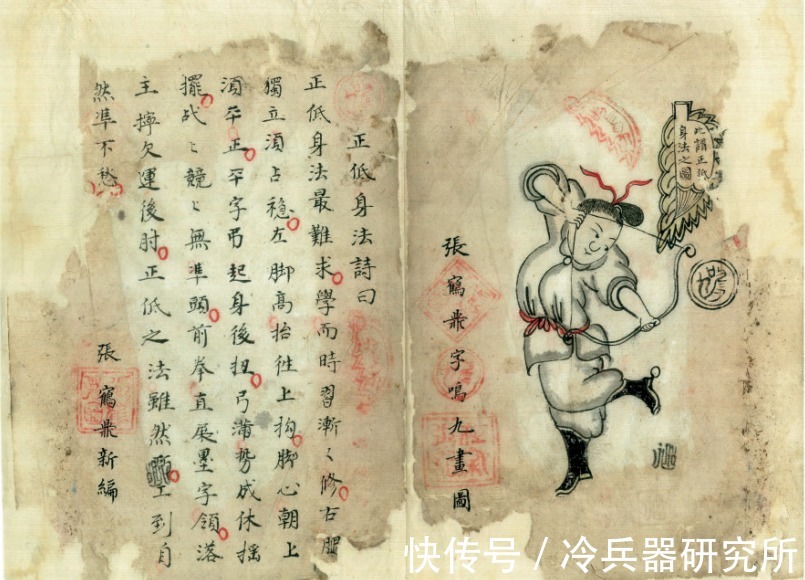 正低身法詩曰
正低身法最難求學而時習漸〻修右腿
獨立須占穩左脚高抬徃上抅脚心朝上
須平正平字弔起身後扭弓滿勢成休揺
擺战〻競〻無準頭前拳直展墨字領落
主擰欠運後肘正低之法雖然工到自
然準不愁
張新編
此講正低
身法之圖
張字鳴九畫圖
快传号 / 冷兵器研究所